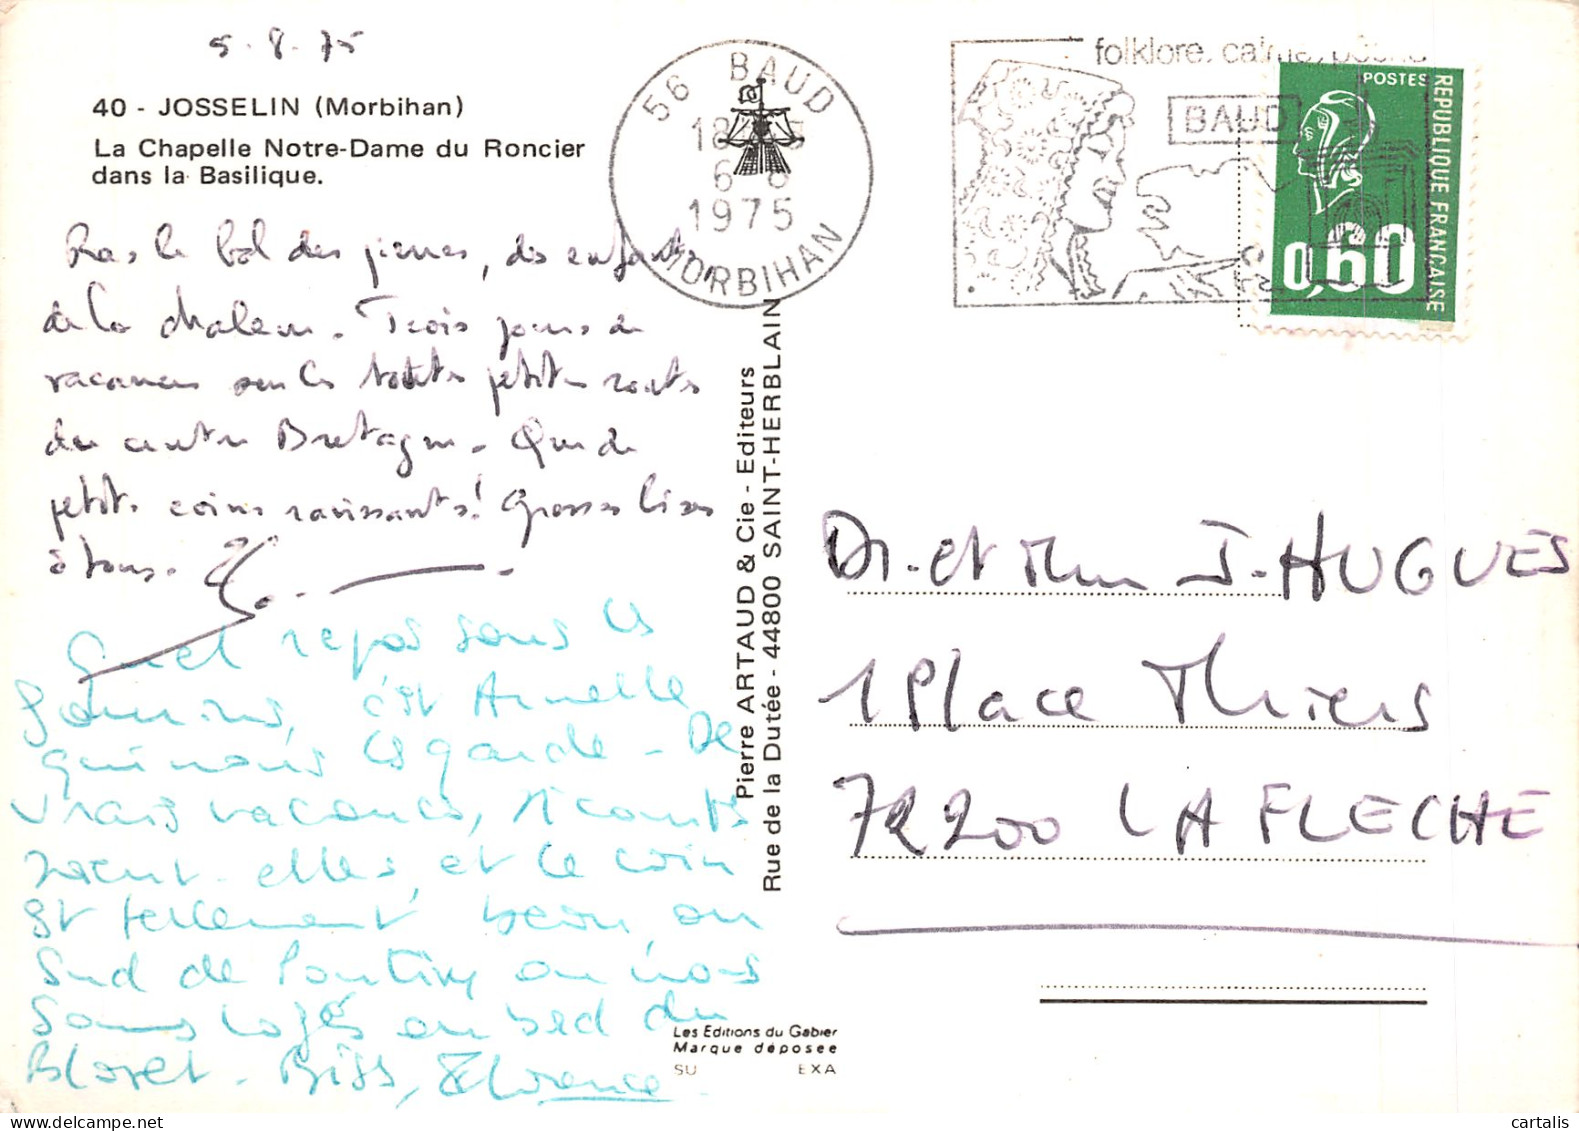 5.8.75
40 - JOSSELIN (Morbihan)
La Chapelle Notre-Dame du Roncier
dans la Basilique.
Ras le bol des pierres, des enfants,
de la chaleur. Trois jours de
vacances sur les toutes petites routes
du centre Bretagne. Que de
petits coins ravissants! Grosses bises
à tous.
Quel repos sous les
, c'est Armelle
qui nous les garde - De
vraies vacances,
soient-elles, et le coin
est tellement beau, au
Sud de Pontivy où nous
sommes logés au bord du
Blavet. Biss, Florence.
56 BAUD
18
6-8
1975
MORBIHAN
folklore, calme, pêche
BAUD
POSTES
REPUBLIQUE FRANÇAISE
0,60
Pierre ARTAUD & Cie - Editeurs
Rue de la Dutée - 44800 SAINT-HERBLAIN
Dr. et Mme J. HUGUES
1 Place Thiers
72200 LA FLECHE
Les Editions du Gabier
Marque déposée
SU EXA
cartalis